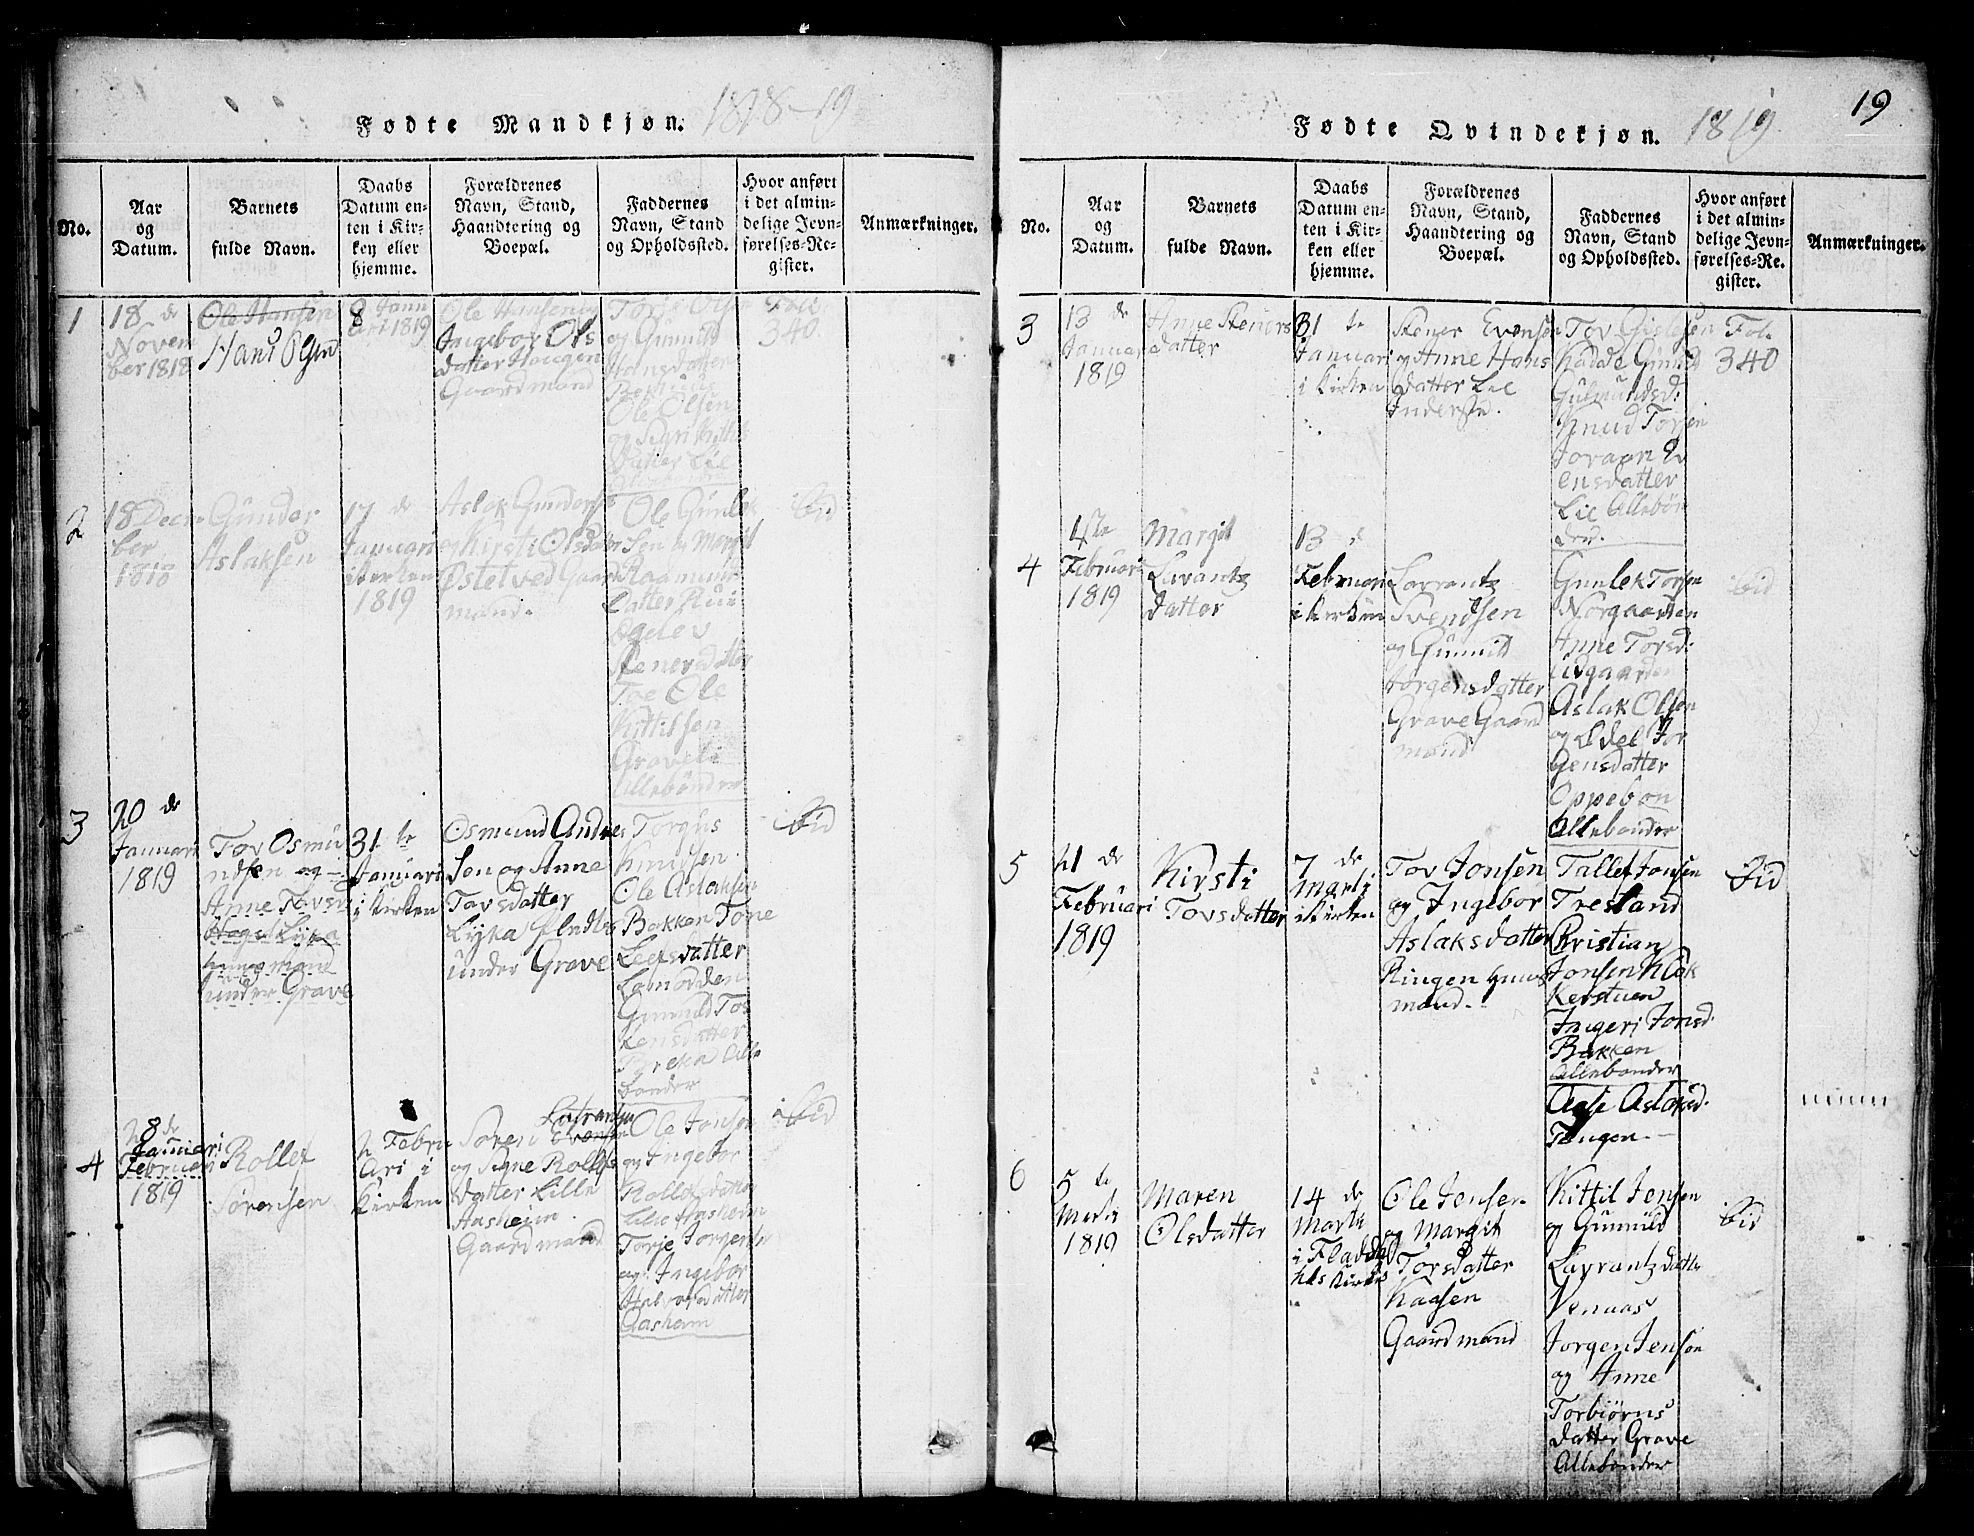 Fødte Mandkjøn. 1818-19
No.
Aar
og
Datum.
Barnets
fulde Navn.
Daabs
Datum en-
ten i Kir-
ken eller
hjemme.
Forældrenes
Navn, Stand,
Haandtering og
Boepæl.
Faddernes
Navn, Stand
og Opholdssted.
Hvor anført
i det almin-
delige Jevn-
førelses-Re-
gister.
Anmærkninger.
1
18 de
Novem
ber 1818
Ole Hansen
Hans Olsen
8 Janu
ari 1819
Ole Hansen og
Ingebor Ols
datter Haugen
Gaardmand
Torje Olsen
og Gunnild
Hansdatter
Ole Olsen
og Sigri Kittils
datter Lie
Fol:
340.
2
18 Decem
ber
1818
Gunder
Aslaksen
17 de
Januari
i Kirken
1819
Aslak Gunders
og Kirsti Olsdatter
Østetved Gaard
mand.
Ole Gunlek
sen og Margit
Raamunds
datter Rui
Stenersdatter
Toe Ole
Kittilsen
Graveli
Allebønder
ibid
3
20 de
Januari
1819
Tov Osmu
ndsen og
Anne Tovsd
Lyka
Huusmand
under Grave
31 te
Januari
i Kirken
Osmund Andres
sen og Anne
Tovsdatter
Lyka
under Grave
Torgus
Knudsen
Ole Aslaksen
Bakken Tone
Leefsdatter
Lomodden
Gunnild Tor
kensdatter
Byreka Alle
bønder
ibid
4
28 de
Januari
Februari
1819
Rollef
Sørensen
2 Febru
ari i
Kirken
Lavrantsen
Søren Evensen
og Signe Rollefs
datter Lille
Aasheim
Gaardmand
Ole Jonsen
og Ingebor
Rollefsdatter
Lille Aasheim
Torje Jorgensen
og Ingebor
Halvorsdatter
Aasheim
ibid
Fødte Qvindekjøn. 1819
19
No.
Aar
og
Datum.
Barnets
fulde Navn.
Daabs
Datum en-
ten i Kir-
ken eller
hjemme.
Forældrenes
Navn, Stand,
Haandtering og
Boepæl.
Faddernes
Navn, Stand
og Opholdssted.
Hvor anført
i det almin-
delige Jevn-
førelses-Re-
gister.
Anmærkninger.
3
13 de
Januari
1819
Anne Steners
datter
31 te
Januari
i Kirken
Stener Evensen
og Anne Hans
datter Lie
Inderste.
Tov Gislesen
Kaasa Gunild
Gulmundsd:
Knud Torsen
Joraan Ev
ensdatter
Lie Allebøn
der.
Fol.
340
4
4ste
Februari
1819
Margit
Lavrantz
datter
13 d
Februari
i Kirken
Lavrantz
Svendsen
og Gunnild
Jorgensdatter
Grave Gaard
mand
Gunlek Torsen
Norgaarden
Anne Torsd:
Uvgaarden
Aslak Olsen
og Edel Jor
gensdatter
Oppebøn
Allebønder
ibid
5
21 de
Februari
1819
Kirsti
Tovsdatter
7 de
Marti
i Kirken
Tov Jonsen
og Ingebor
Aslaksdatter
Ringen Huus
mand.
Tallef Jonsen
Tresland
Christian
Jonsen Klok
kerstuen
Ingeri Jonsd.
Bakken
Allebønder
Aase Aslaksd.
Tangen.
ibid
6
5 de
Marti
1819
Maren
Olsdatter
14 de
Marti
i Fladdal
hls Kirke
Ole Jensen
og Margit
Torsdatter
Kaasen
Gaardmand
Kittil Jensen
og Gunnild
Lavrantzdatter
Venaas
Jorgen Jensøn
og Anne
Torbiørns
datter Grave
Allebønder
ibid